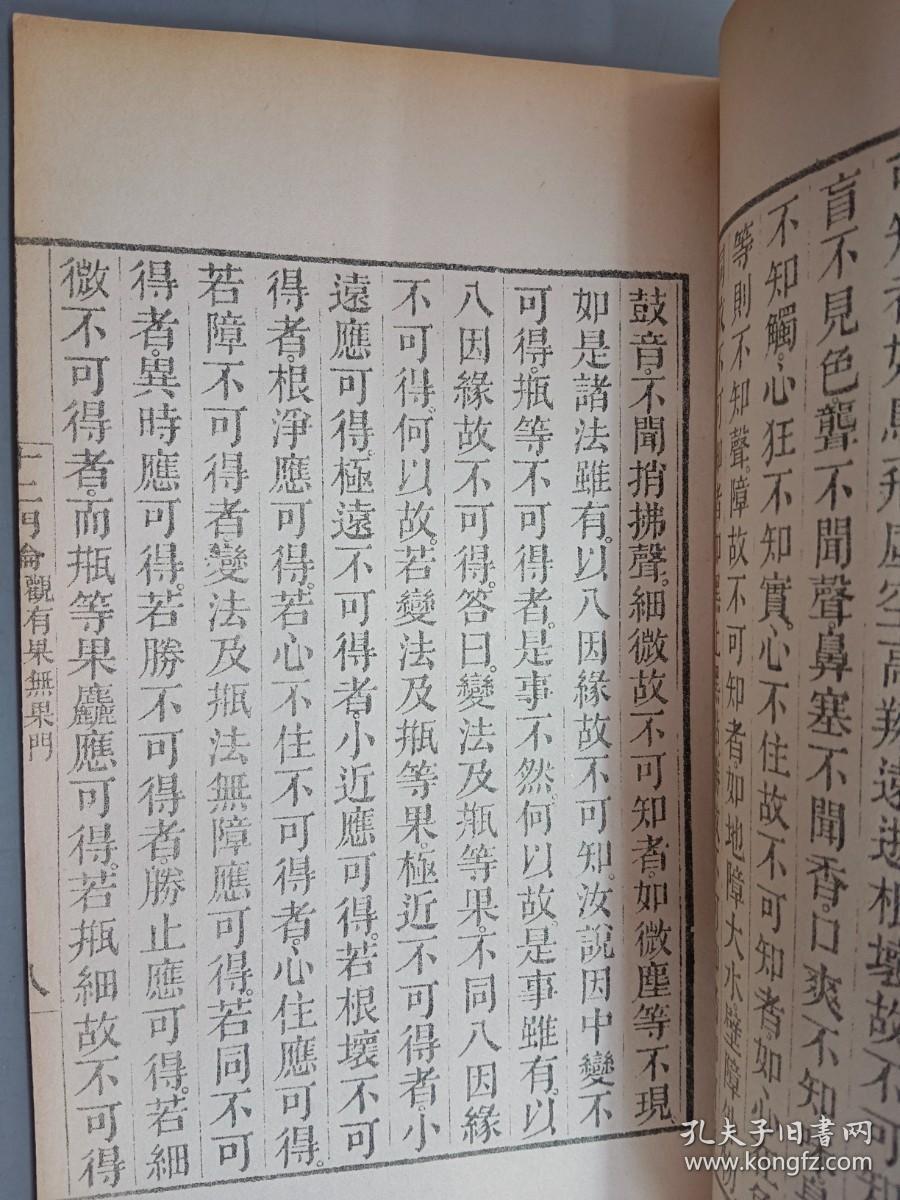 盲不見色。聾不聞聲。鼻塞不聞香。口爽不知
不知觸。心狂不知實。心不住故不可知者。如心
等則不知聲。障故不可知者。如地障大水壁障
鼓音。不聞捎拂聲。細微故不可知者。如微塵等不現。
如是諸法雖有。以八因緣故不可知。汝說因中變不
可得。瓶等不可得者。是事不然。何以故。是事雖有。以
八因緣故不可得。答曰。變法及瓶等果。不同八因緣
不可得。何以故。若變法及瓶等果。極近不可得者。小
遠應可得。極遠不可得者。小近應可得。若根壞不可
得者。根淨應可得。若心不住不可得者。心住應可得。
若障不可得者。變法及瓶法無障應可得。若同不可
得者。異時應可得。若勝不可得者。勝止應可得。若細
微不可得者。而瓶等果麤應可得。若瓶細故不可得
十二門論觀有果無果門
八
孔夫子旧書网
@kongfz.com